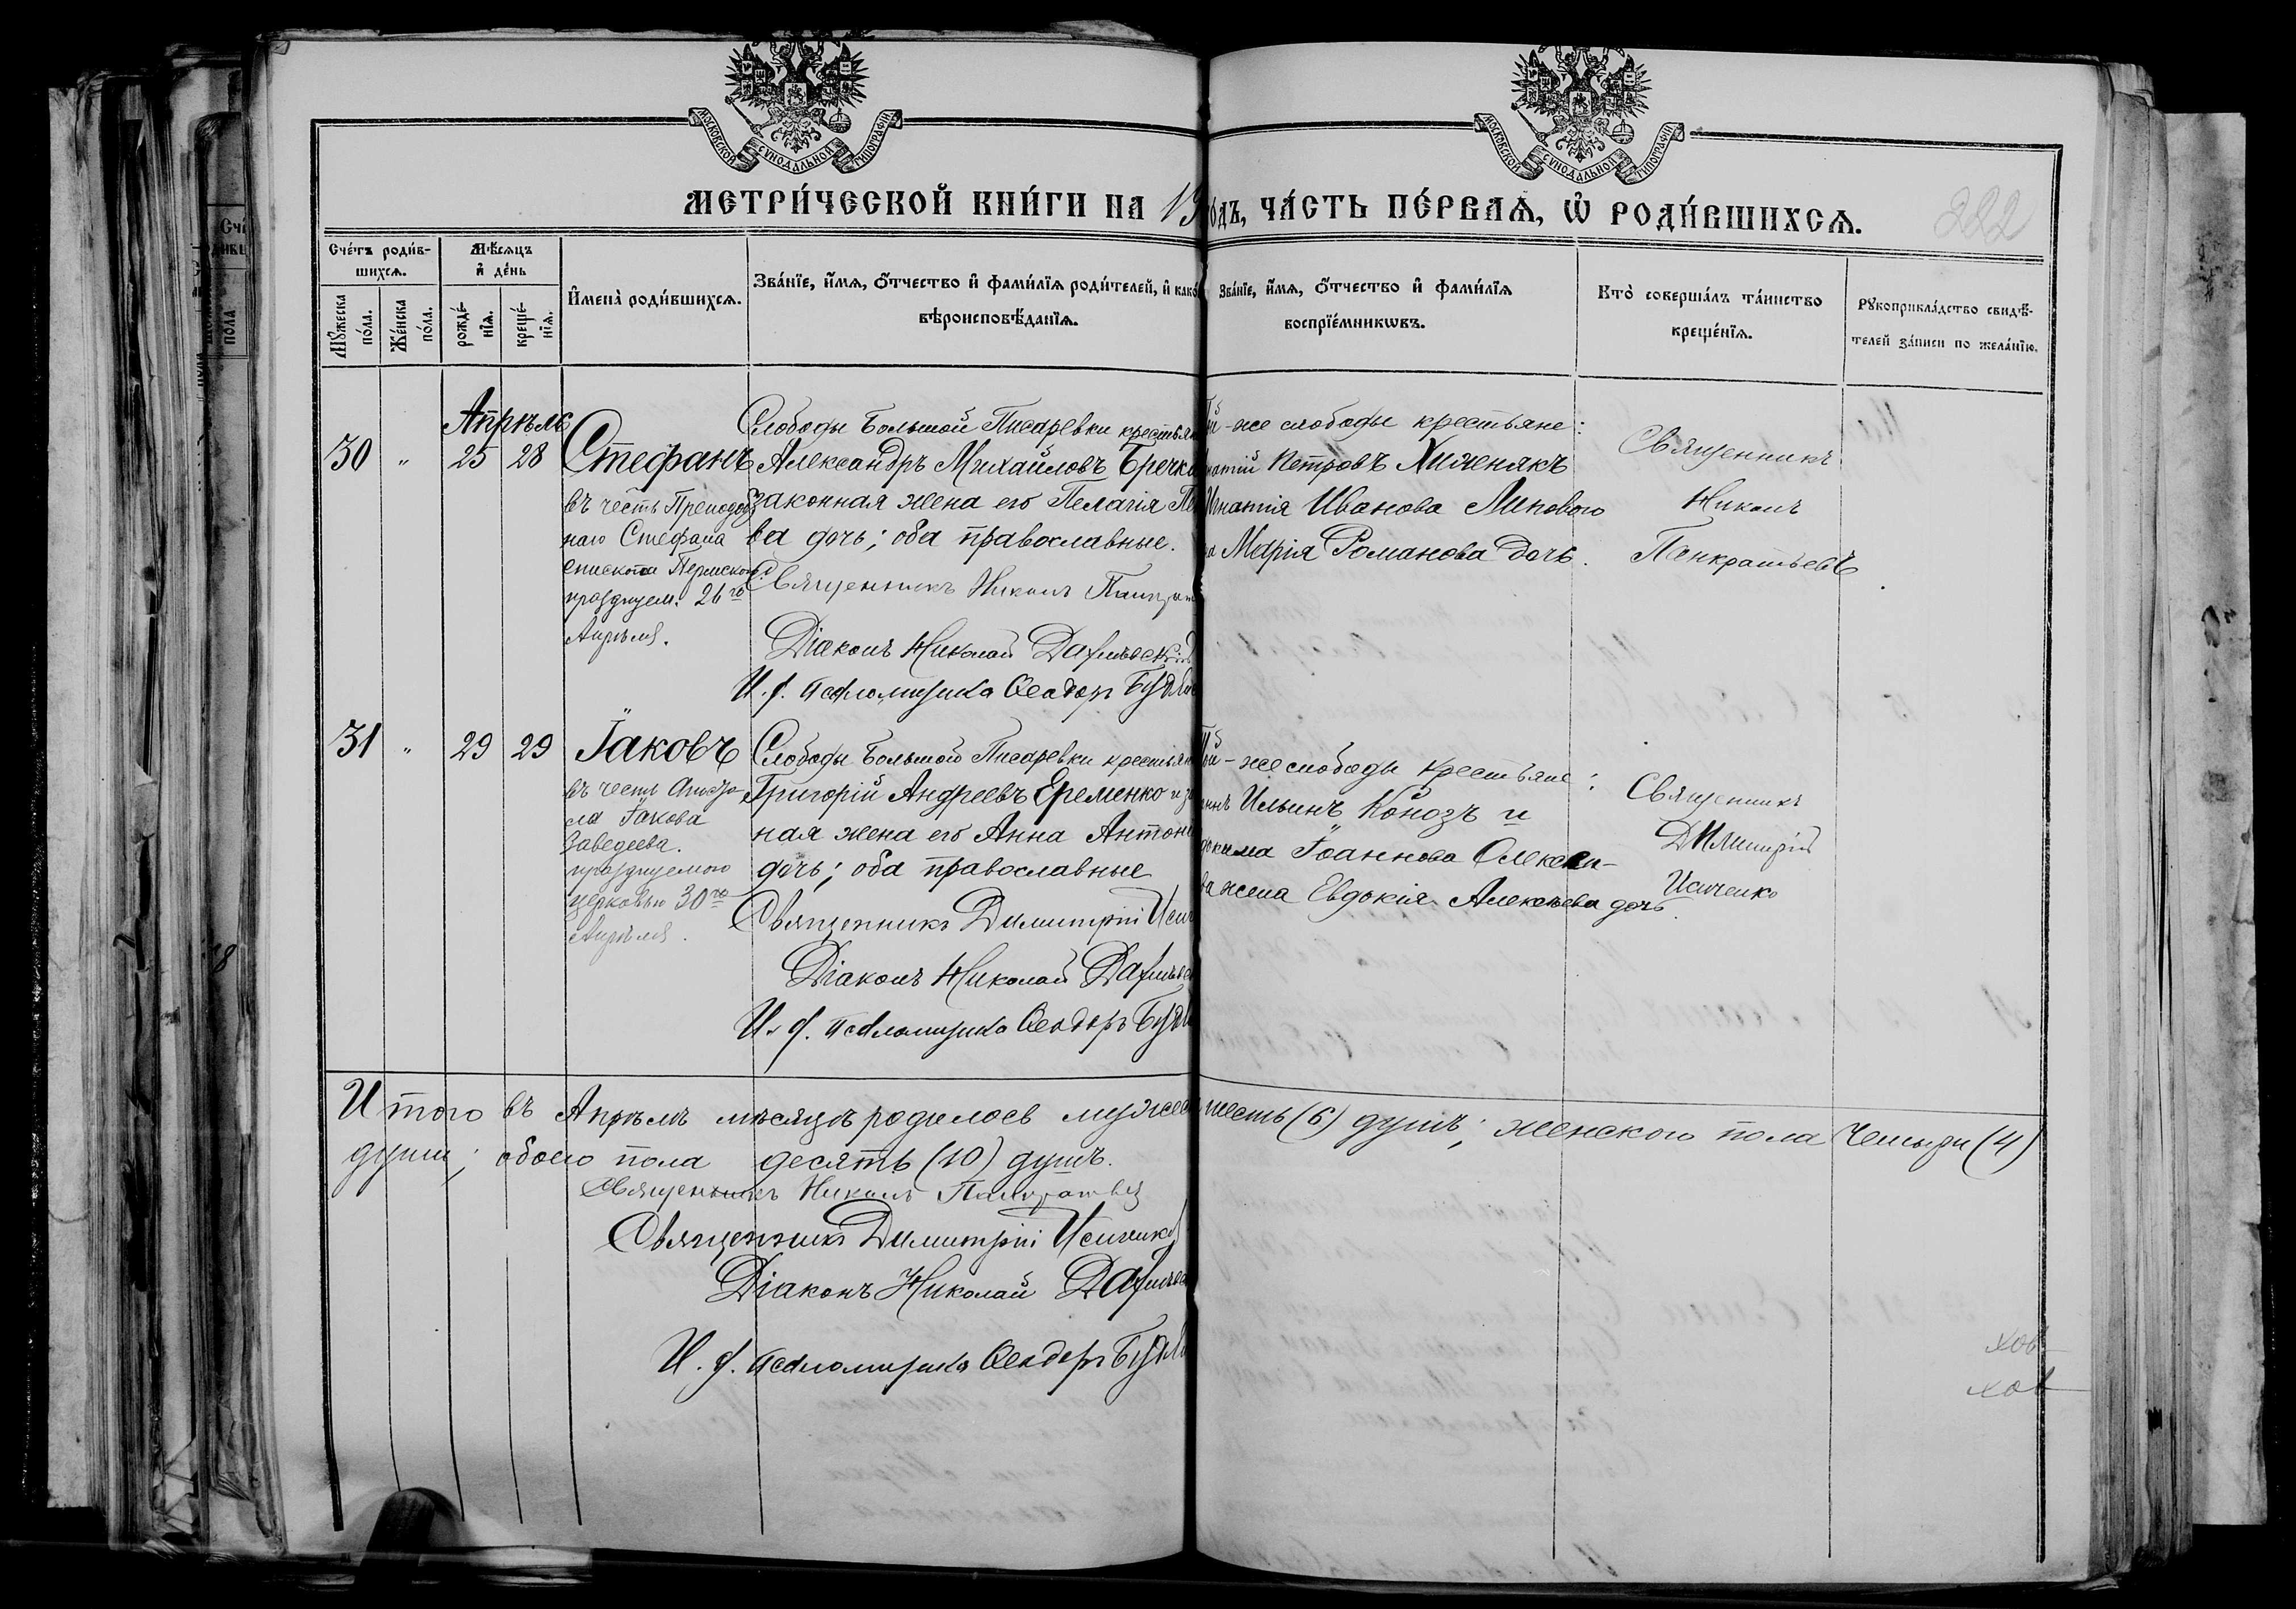 МОСКОВСКОЙ СУНОДАЛЬНОЙ ТИПОГРАФІИ
МОСКОВСКОЙ СУНОДАЛЬНОЙ ТИПОГРАФІИ
МЕТРИ́ЧЕСКОЙ КНИ́ГИ НА 19
ОДЪ, ЧА́СТЬ ПЕ́РВАѦ, Ѽ РОДИ́ВШИХСѦ.
222
Сче́тъ роди́в-
шихсѧ.
Мѣ́сѧцъ
и҆ де́нь
Мꙋ́жеска
по́ла.
Же́нска
по́ла.
рожде́-
нїѧ.
креще́-
нїѧ.
И҆мена̀ роди́вшихсѧ.
Зва́нїе, и҆́мѧ, ѻ҆́тчество и҆ фами́лїѧ роди́телей, и҆ како́
вѣроисповѣ́данїѧ.
Зва́нїе, и҆́мѧ, ѻ҆́тчество и҆ фами́лїѧ
воспрїе́мникѡвъ.
Кто̀ соверша́лъ та́инство
креще́нїѧ.
Рꙋкоприкла́дство свидѣ́-
телей за́писи по жела́нїю.
Апрѣль
30 " 25 28 Стефанъ
въ честь Преподоб
наго Стефана
епископа Пермского
празднуем. 26го
Апрѣля.
Слободы Большой Писаревки крестьян
Александръ Михайловъ Бречк
законная жена его Пелагія Пе
ва дочь; оба православные.
Священникъ Никонъ Панкрат
Діаконъ Николай
И. д. псаломщика Ѳеодоръ
й-же слободы крестьяне:
натій Петровъ Хижнякъ
Игнатія Иванова Линового
Марія Романова дочь.
Священникъ
Никонъ
Панкратьевъ
31 " 29 29 Іаковъ
въ честь Апосто-
ла Іакова
Заведеева.
празднуемого
церковью 30го
Апрѣля.
Слободы Большой Писаревки крестьян
Григорій Андреевъ Еременко и за
ная жена его Анна Антоно
дочь; оба православные
Священникъ Димитрій Исич
Діаконъ Николай
И. д. псаломщика Ѳеодоръ
ой-же слободы крестьяне:
аннъ Ильинъ Конозъ и
докима Іоаннова Олексен-
ва жена Евдокія Алексѣева дочь.
Священникъ
Димитрій
Исиченко
Итого въ Апрѣлѣ мѣсяцѣ родилось мужес шесть (6) душъ; женского пола четыри (4)
души; обоего пола десять (10) душъ.
Священникъ Никонъ Панкратьевъ
Священникъ Димитрій Исиченко
Діаконъ Николай
И. д. псаломщика Ѳеодоръ